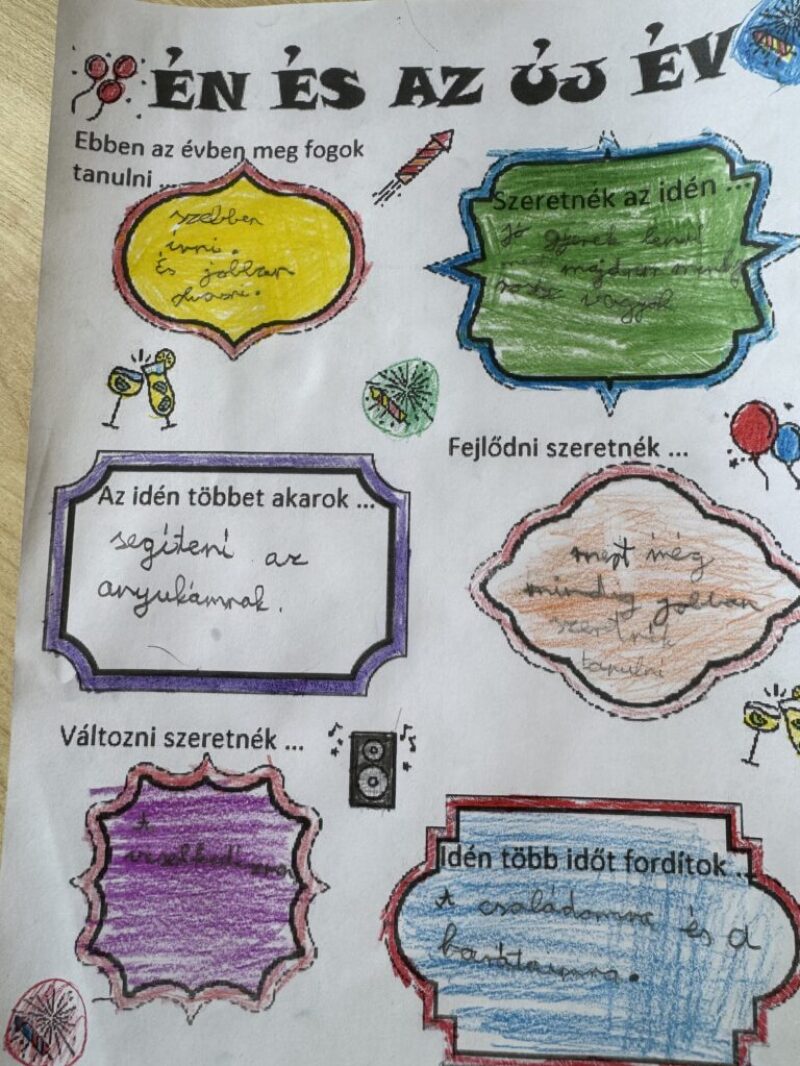 ÉN ÉS AZ ÚJ ÉV
Ebben az évben meg fogok
tanulni ...
szebben
írni.
És jobban
olvasni.
Szeretnék az idén ...
jó gyerek lenni
mert majdnem mindig
rossz vagyok
Az idén többet akarok ...
segíteni az
anyukámnak.
Fejlődni szeretnék ...
mert még
mindig jobban
szeretnék
tanulni
Változni szeretnék ...
A
viselkedésemen
Idén több időt fordítok ...
A családomra és a
barátaimra.